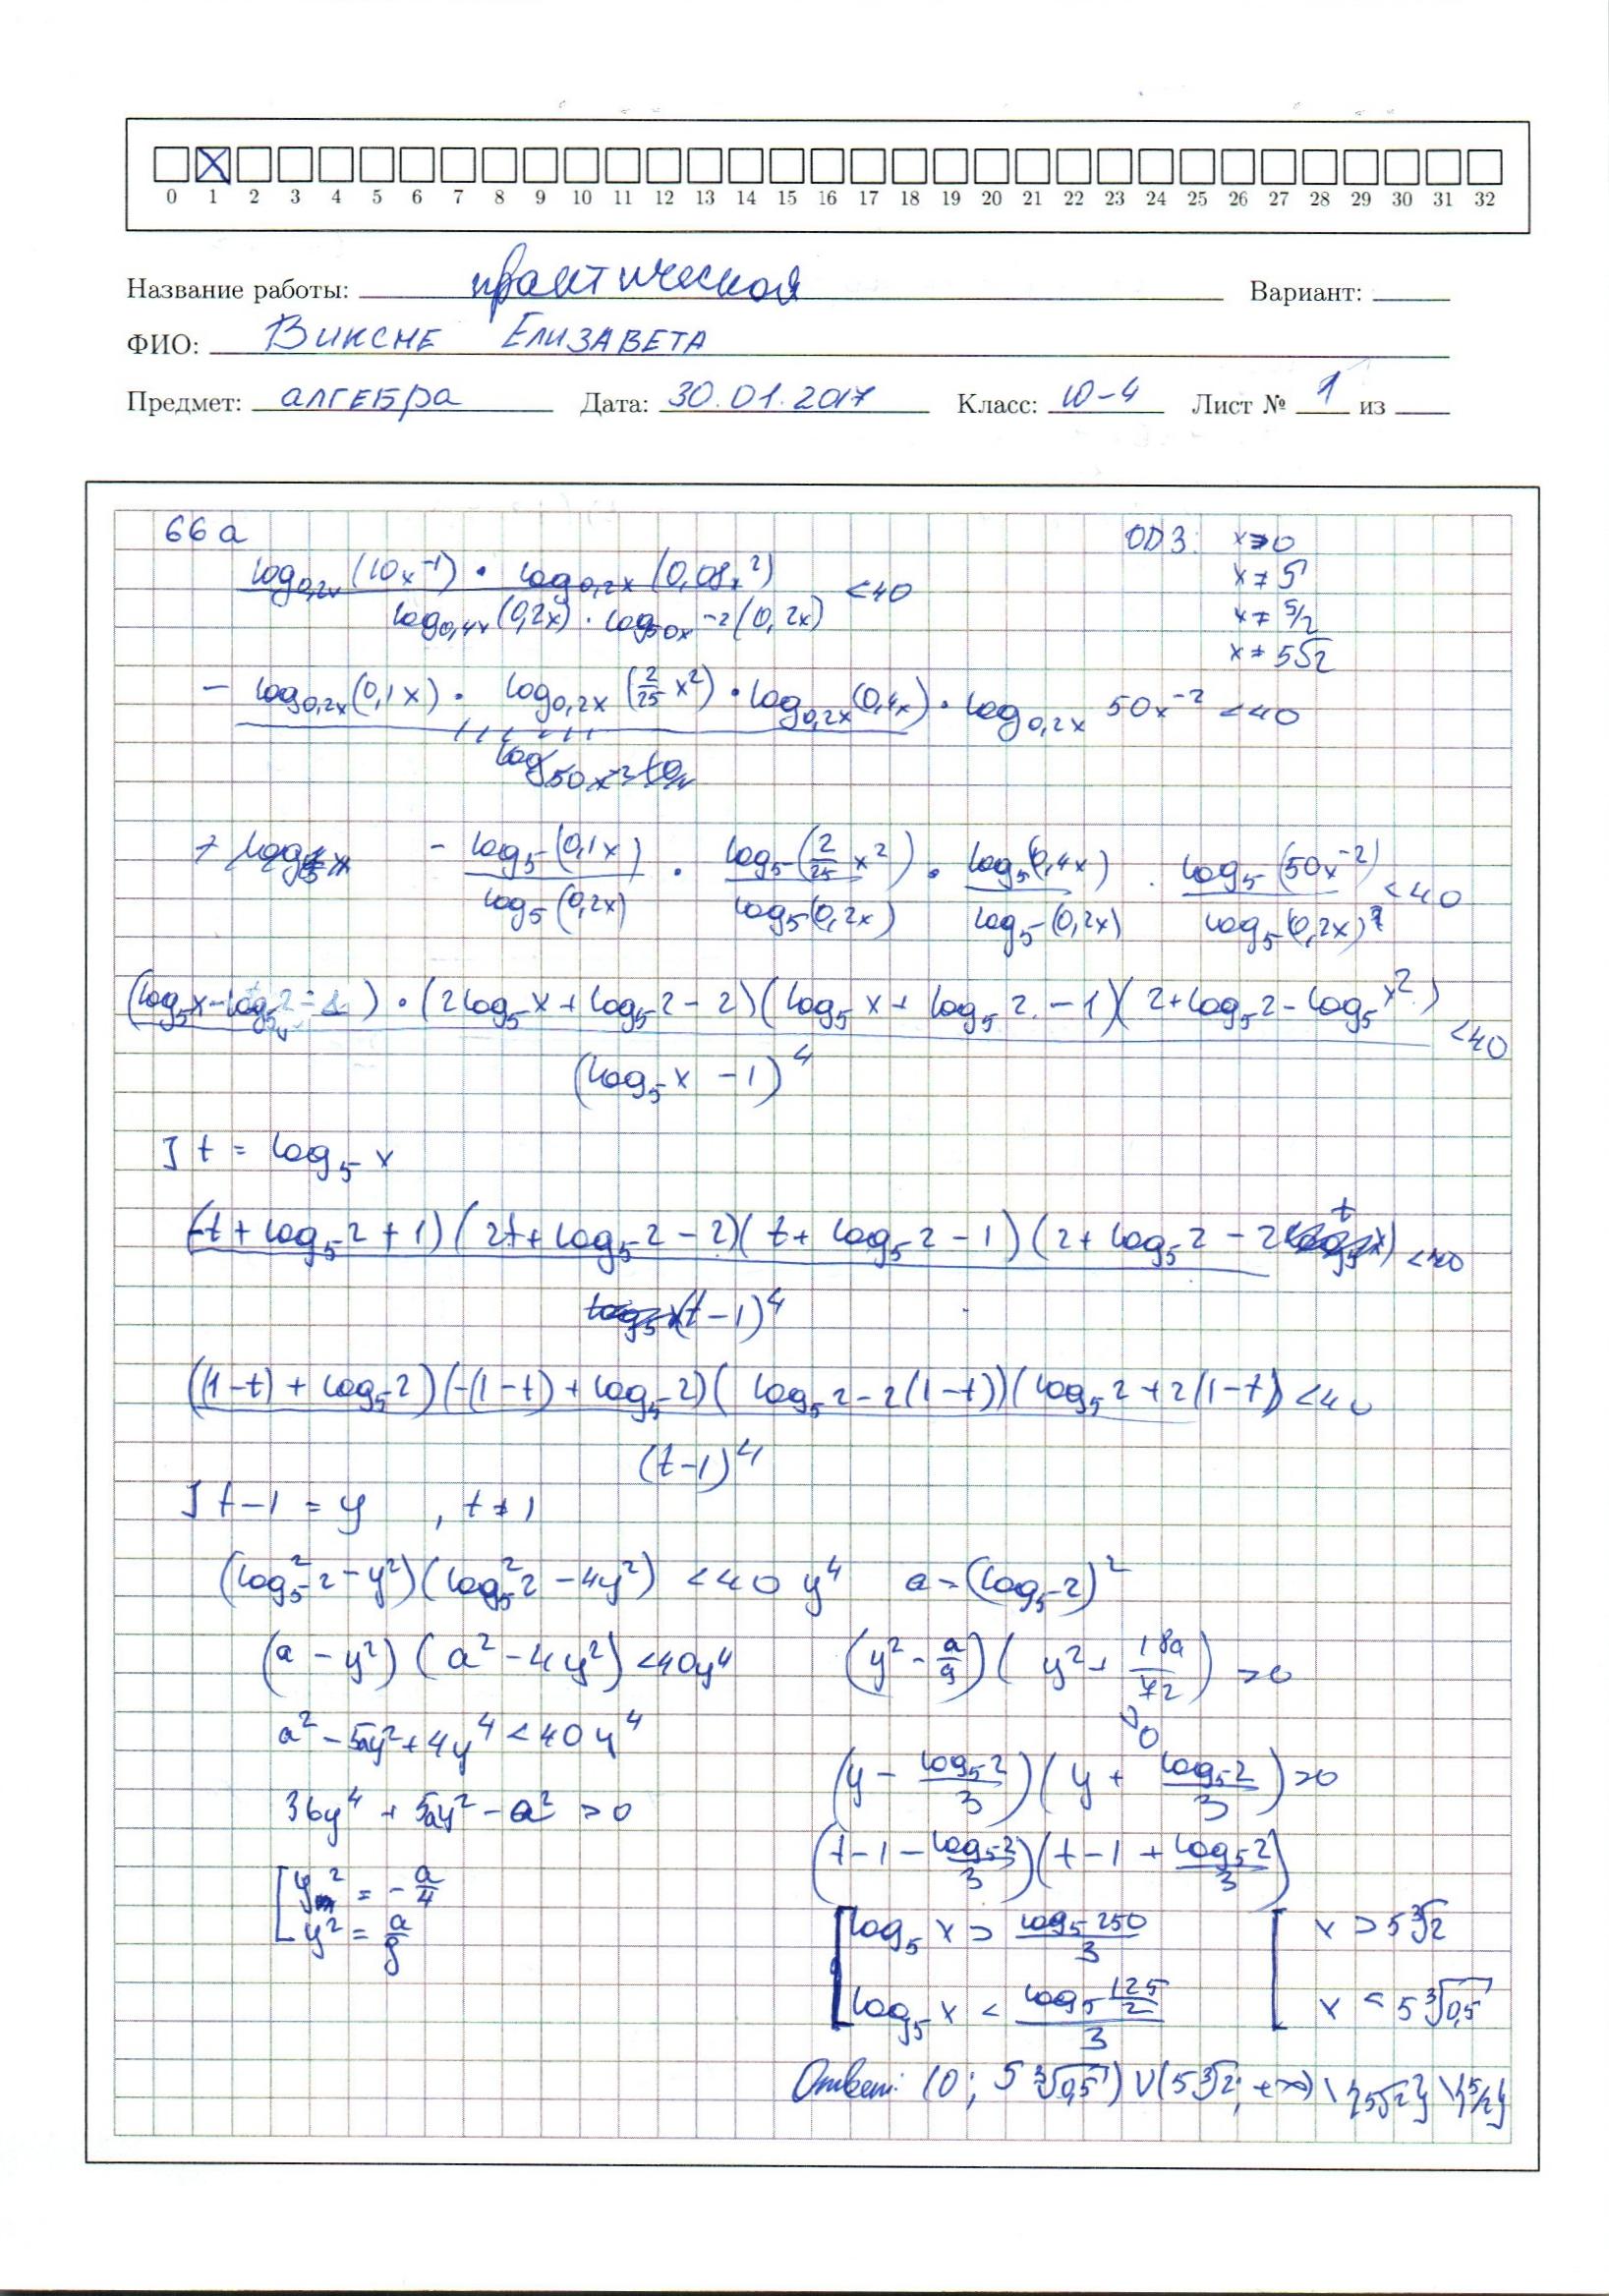 0 1 2 3 4 5 6 7 8 9 10 11 12 13 14 15 16 17 18 19 20 21 22 23 24 25 26 27 28 29 30 31 32
Название работы: практическая Вариант:
ФИО: Виксне Елизавета
Предмет: алгебра Дата: 30.01.2017 Класс: 10-4 Лист № 1 из
66a ОДЗ: x>0
x≠5
x≠5/2
x≠5√2
log_{0,2x}(10x^{-1}) · log_{0,2x}(0,08x^2) <40
log_{0,4x}(0,2x) · log_{50x^{-2}}(0,2x)
- log_{0,2x}(0,1x) · log_{0,2x}(2/25 x^2) · log_{0,2x}(0,4x) · log_{0,2x} 50x^{-2} <40
- log_5(0,1x) · log_5(2/25 x^2) · log_5(0,4x) · log_5(50x^{-2}) <40
log_5(0,2x) log_5(0,2x) log_5(0,2x) log_5(0,2x)
(log_5 x - log_5 2 - 1) · (2log_5 x + log_5 2 - 2)(log_5 x + log_5 2 - 1)(2 + log_5 2 - log_5 x^2) <40
(log_5 x - 1)^4
] t = log_5 x
(-t + log_5 2 + 1)(2t + log_5 2 - 2)(t + log_5 2 - 1)(2 + log_5 2 - 2t) <40
(t-1)^4
((1-t) + log_5 2)(-(1-t) + log_5 2)(log_5 2 - 2(1-t))(log_5 2 + 2(1-t)) <40
(t-1)^4
] t-1 = y , t≠1
(log_5^2 2 - y^2)(log_5^2 2 - 4y^2) <40 y^4 a = (log_5 2)^2
(a - y^2)(a^2 - 4y^2) <40y^4
a^2 - 5ay^2 + 4y^4 < 40y^4
36y^4 + 5ay^2 - a^2 > 0
y^2 = -a/4
y^2 = a/9
(y^2 - a/9)(y^2 + 18a/72) >0
>0
(y - log_5 2/3)(y + log_5 2/3) >0
(t-1 - log_5 2/3)(t-1 + log_5 2/3)
log_5 x > log_5 250/3 x > 5∛2
log_5 x < log_5 125/2 /3 x < 5∛0,5
Ответ: (0; 5∛0,5) ∪ (5∛2; +∞) \ {5√2} \ {5/2}